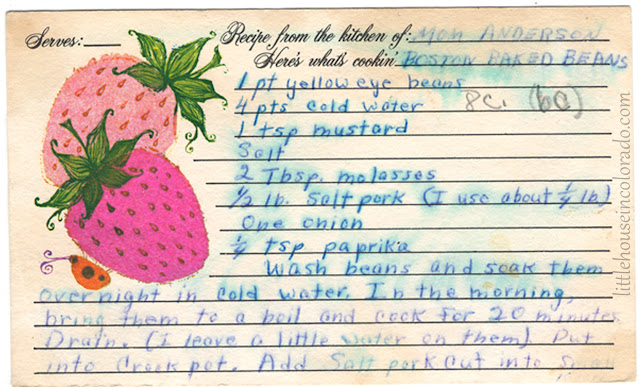 Serves:
Recipe from the kitchen of: MOM ANDERSON
Here's what's cookin' BOSTON BAKED BEANS
1 pt yelloweye beans
4 pts cold water 8c. (6c)
1 tsp mustard
Salt
2 Tbsp. molasses
1/2 lb. salt pork (I use about 1/4 lb.)
One onion
1/4 tsp paprika
Wash beans and soak them
overnight in cold water. In the morning,
bring them to a boil and cook for 20 minutes
Drain. (I leave a little water on them). Put
into Crock pot. Add Salt pork cut into small
littlehouseincolorado.com